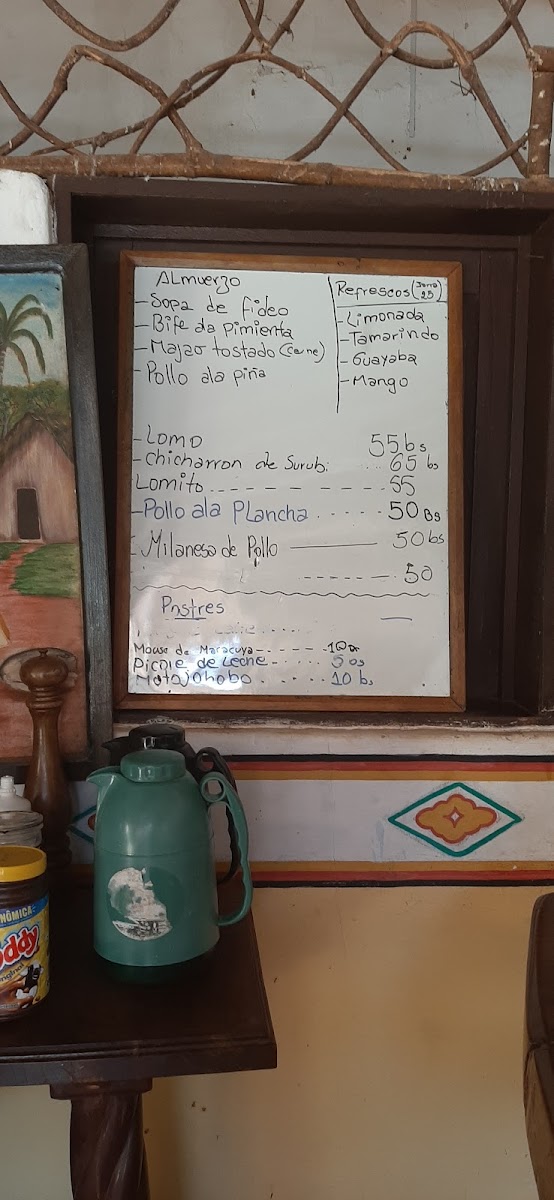 Almuerzo
- Sopa de fideo
- Bife da pimienta
- Majao tostado (carne)
- Pollo ala piña
Refrescos (Jarra 25
- Limonada
- Tamarindo
- Guayaba
- Mango
- Lomo 55 bs
- chicharron de Surubi. 65 bs
Lomito 55
- Pollo ala Plancha 50 Bs
- Milanesa de Pollo 50 bs
50
Postres
Mouse de Maracuya 10
Picole de Leche 5 os
Motojobobo 10 bs
NÔMICA
ddy
original